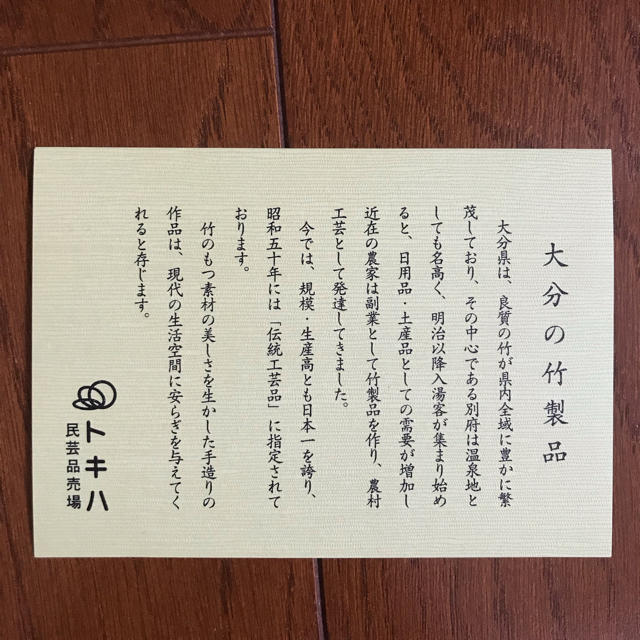 大分の竹製品
大分県は、良質の竹が県内全域に豊かに繁
茂しており、その中心である別府は温泉地と
しても名高く、明治以降入湯客が集まり始め
ると、日用品・土産品としての需要が増加し
近在の農家は副業として竹製品を作り、農村
工芸として発達してきました。
今では、規模・生産高とも日本一を誇り、
昭和五十年には「伝統工芸品」に指定されて
おります。
竹のもつ素材の美しさを生かした手造りの
作品は、現代の生活空間に安らぎを与えてく
れると存じます。
トキハ
民芸品売場